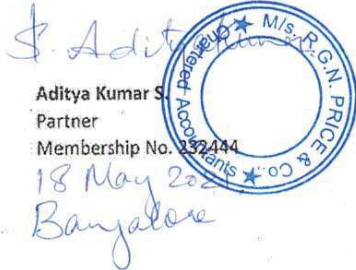 S. Aditya Kumar
Aditya Kumar S.
Partner
Membership No. 232444
18 May 202
Bangalore
M/s. R.G.N. PRICE & Co.
Chartered Accountants